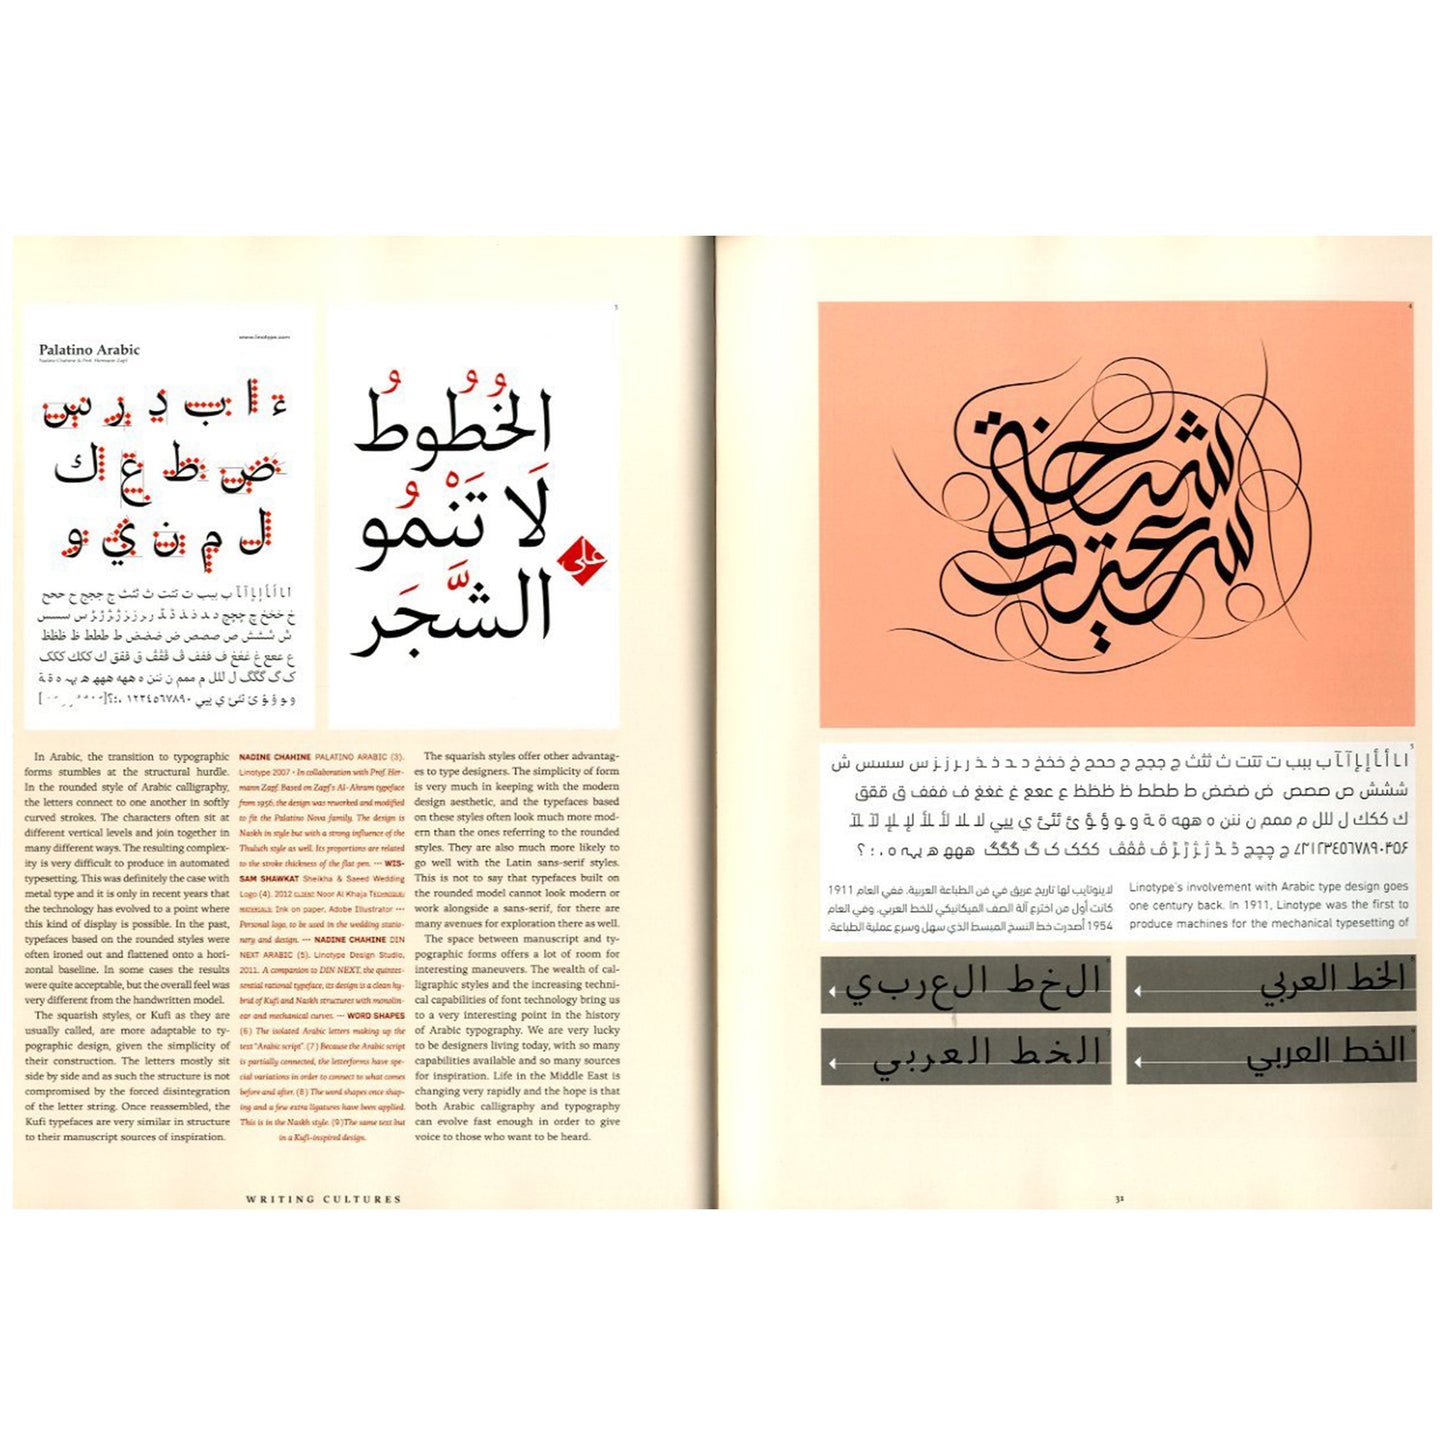 3
www.linotype.com
Palatino Arabic
Nadine Chahine & Prof. Hermann Zapf
ء ا ب د ر س
ص ط ع ك
ل م ن ي و
الخُطُوطُ
لَا تَنْمُو
على
الشَّجَر
In Arabic, the transition to typographic
forms stumbles at the structural hurdle.
In the rounded style of Arabic calligraphy,
the letters connect to one another in softly
curved strokes. The characters often sit at
different vertical levels and join together in
many different ways. The resulting complex-
ity is very difficult to produce in automated
typesetting. This was definitely the case with
metal type and it is only in recent years that
the technology has evolved to a point where
this kind of display is possible. In the past,
typefaces based on the rounded styles were
often ironed out and flattened onto a hori-
zontal baseline. In some cases the results
were quite acceptable, but the overall feel was
very different from the handwritten model.
The squarish styles, or Kufi as they are
usually called, are more adaptable to ty-
pographic design, given the simplicity of
their construction. The letters mostly sit
side by side and as such the structure is not
compromised by the forced disintegration
of the letter string. Once reassembled, the
Kufi typefaces are very similar in structure
to their manuscript sources of inspiration.
NADINE CHAHINE PALATINO ARABIC (3).
Linotype 2007 • In collaboration with Prof. Her-
mann Zapf. Based on Zapf's Al-Ahram typeface
from 1956, the design was reworked and modified
to fit the Palatino Nova family. The design is
Naskh in style but with a strong influence of the
Thuluth style as well. Its proportions are related
to the stroke thickness of the flat pen. ••• WIS-
SAM SHAWKAT Sheikha & Saeed Wedding
Logo (4). 2012 CLIENT Noor Al Khaja TECHNIQUE/
MATERIALS: Ink on paper, Adobe Illustrator •••
Personal logo, to be used in the wedding statio-
nery and design. ••• NADINE CHAHINE DIN
NEXT ARABIC (5). Linotype Design Studio,
2011. A companion to DIN NEXT, the quintes-
sential rational typeface, its design is a clean hy-
brid of Kufi and Naskh structures with monolin-
ear and mechanical curves. ••• WORD SHAPES
(6) The isolated Arabic letters making up the
text "Arabic script". (7) Because the Arabic script
is partially connected, the letterforms have spe-
cial variations in order to connect to what comes
before and after. (8) The word shapes once shap-
ing and a few extra ligatures have been applied.
This is in the Naskh style. (9) The same text but
in a Kufi-inspired design.
The squarish styles offer other advantag-
es to type designers. The simplicity of form
is very much in keeping with the modern
design aesthetic, and the typefaces based
on these styles often look much more mod-
ern than the ones referring to the rounded
styles. They are also much more likely to
go well with the Latin sans-serif styles.
This is not to say that typefaces built on
the rounded model cannot look modern or
work alongside a sans-serif, for there are
many avenues for exploration there as well.
The space between manuscript and ty-
pographic forms offers a lot of room for
interesting maneuvers. The wealth of cal-
ligraphic styles and the increasing techni-
cal capabilities of font technology bring us
to a very interesting point in the history
of Arabic typography. We are very lucky
to be designers living today, with so many
capabilities available and so many sources
for inspiration. Life in the Middle East is
changing very rapidly and the hope is that
both Arabic calligraphy and typography
can evolve fast enough in order to give
voice to those who want to be heard.
WRITING CULTURES
4
شيخة
سعيد
5
لاينوتايب لها تاريخ عريق في فن الطباعة العربية. ففي العام 1911
كانت أول من اخترع آلة الصف الميكانيكي للخط العربي. وفي العام
1954 أصدرت خط النسخ المبسط الذي سهل وسرع عملية الطباعة.
Linotype's involvement with Arabic type design goes
one century back. In 1911, Linotype was the first to
produce machines for the mechanical typesetting of
ا ل خ ط ا ل ع ر ب ي
الخط العربي
الخط العربي
الخط العربي
31